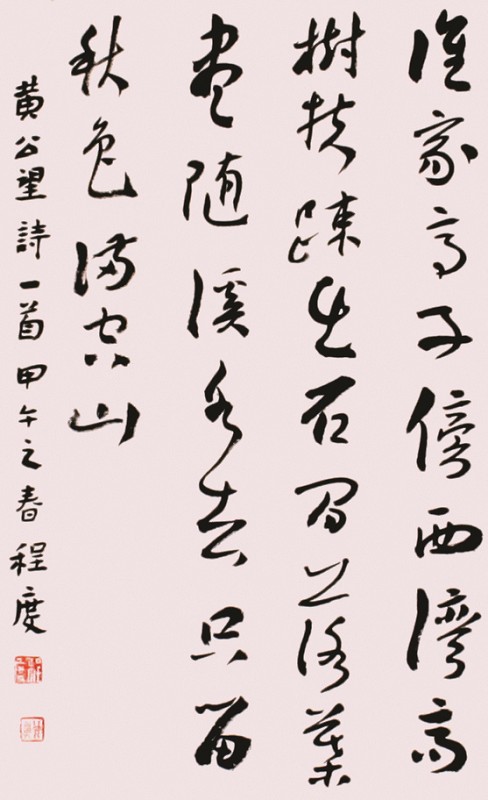 誰家亭子傍西灣高
樹扶疎出石間落葉
尽随溪水去只留
秋色满空山
黄公望詩一首甲午之春 程度